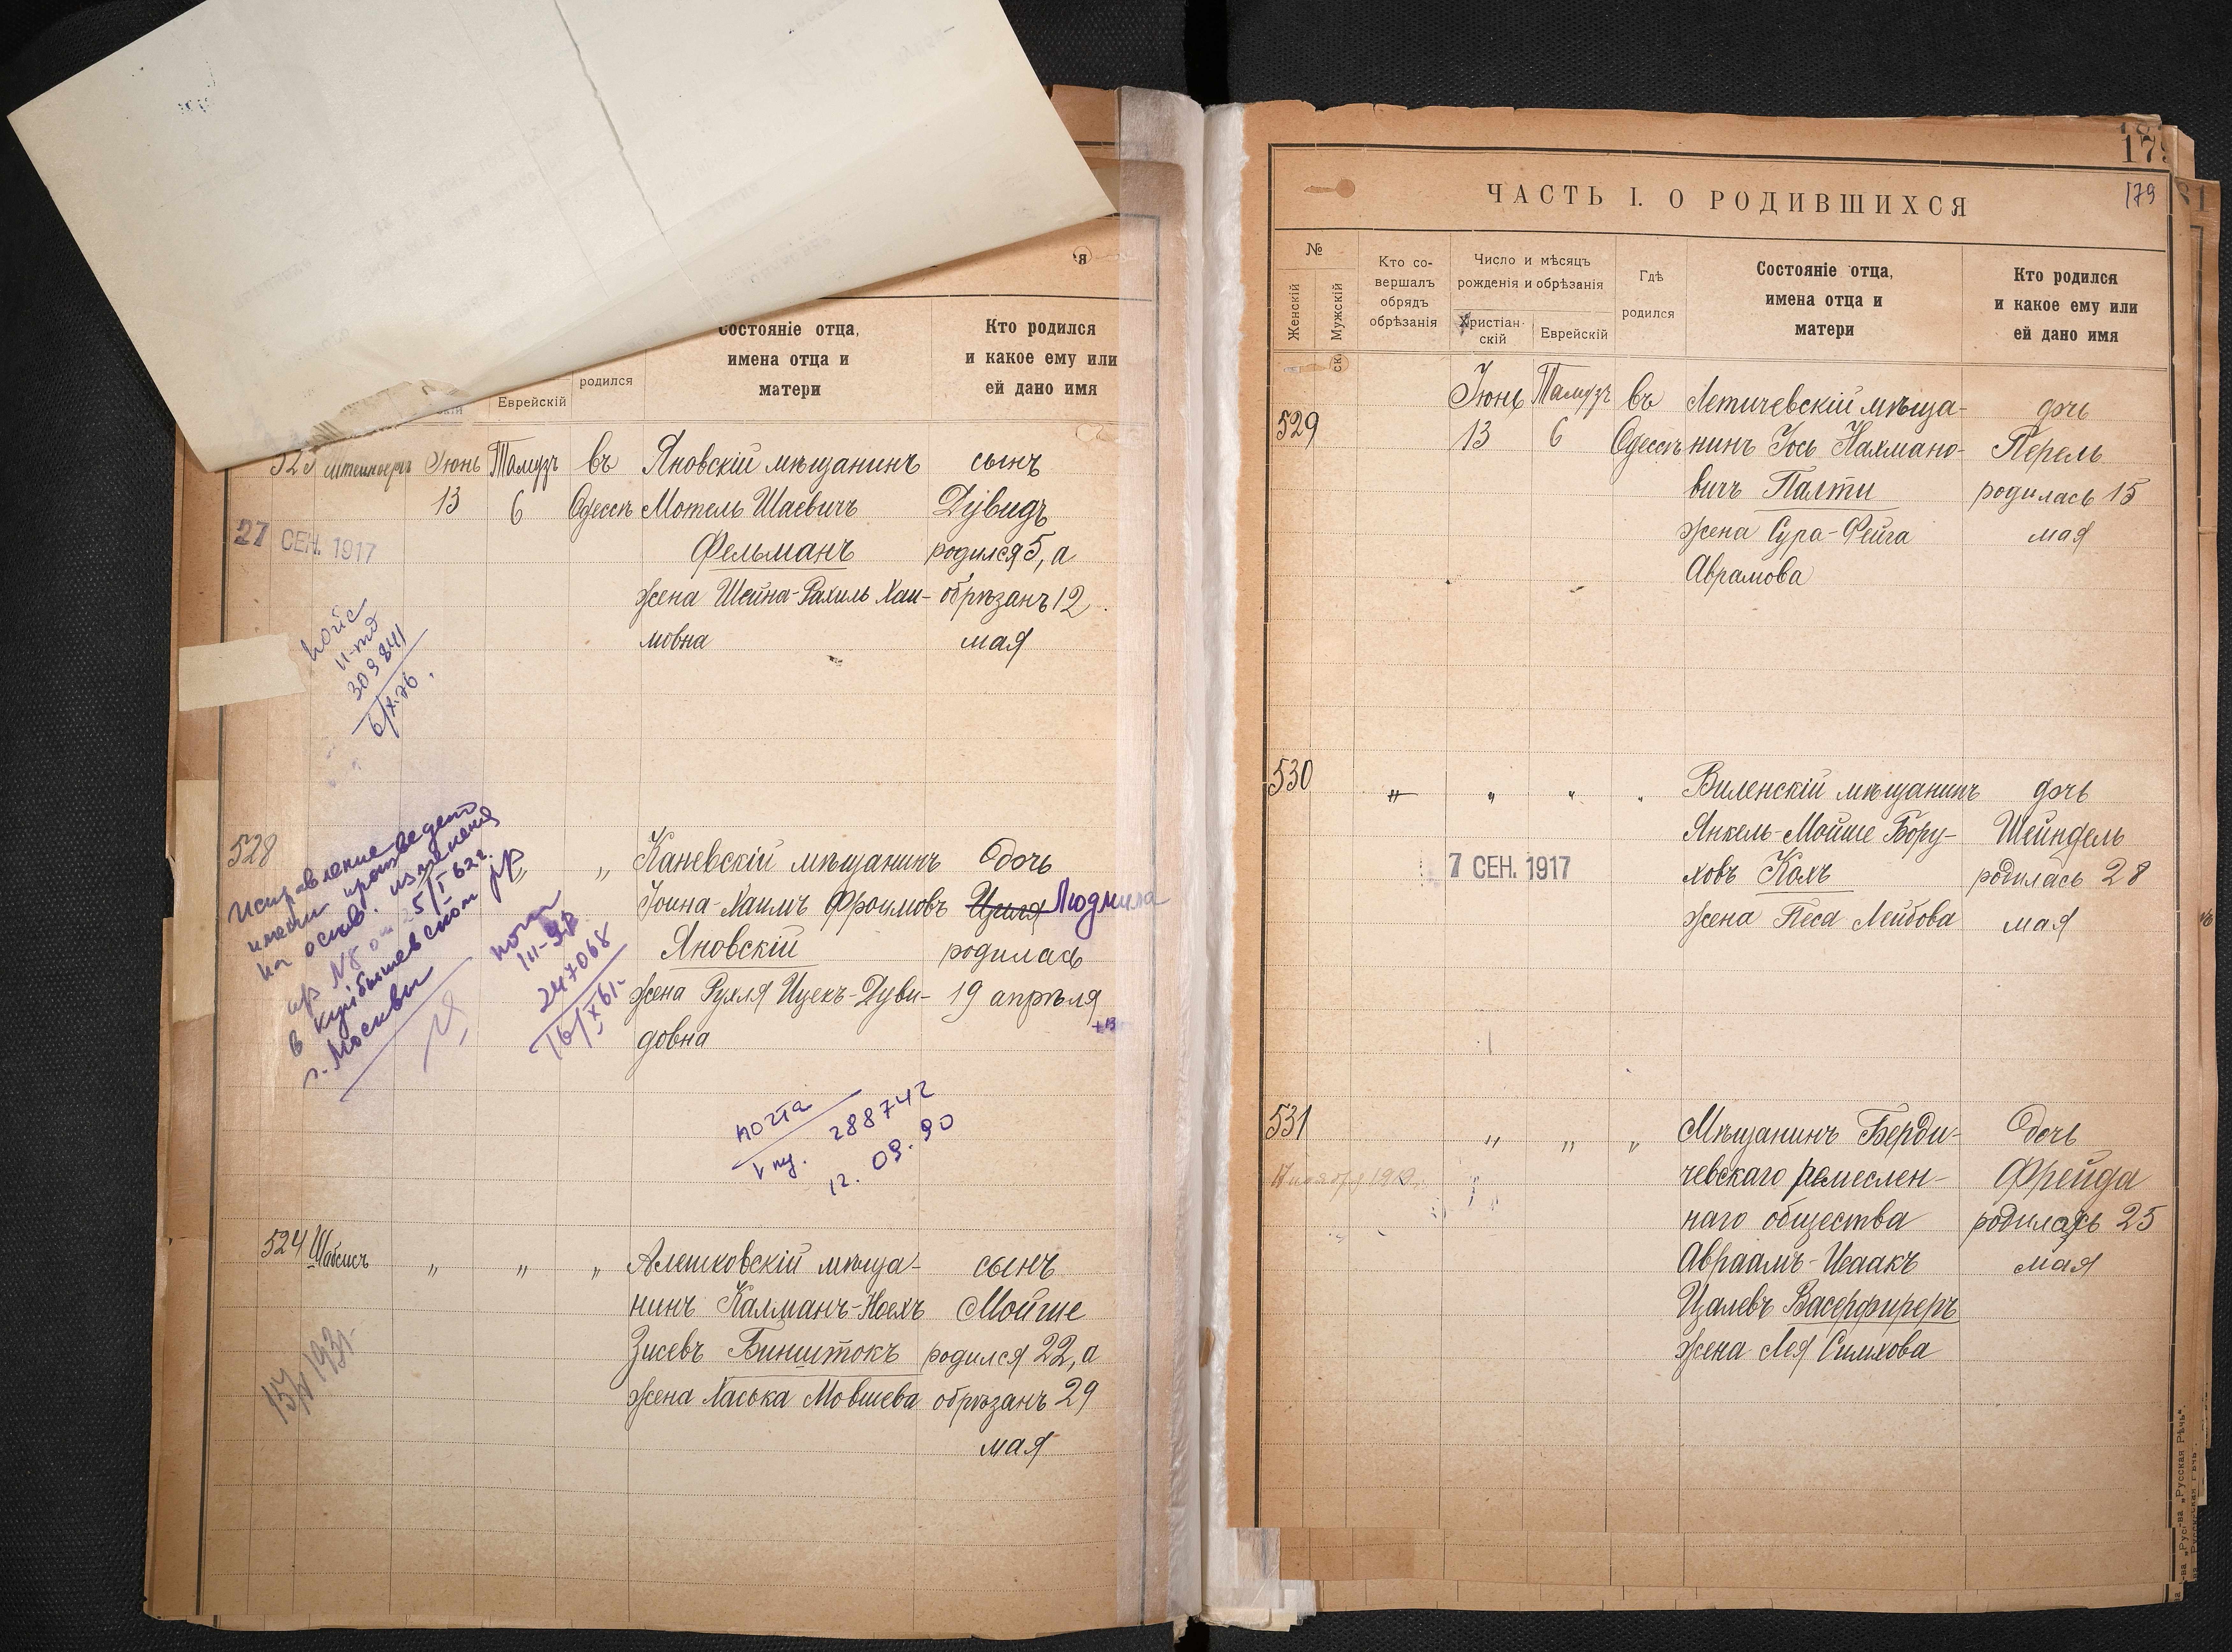 Состояніе отца,
имена отца и
матери
Кто родился
и какое ему или
ей дано имя
родился
Еврейскій
523 Іюнь Тамузъ въ Яновскій мѣщанинъ сынъ
13 6 Одессѣ Мотель Шаевичъ Дувидъ
27 СЕН. 1917
Фельманъ родился 5, а
жена Шейна-Рахиль Хаи- обрѣзанъ 12
мовна мая
309841
6/X.76.
528 „ „ Каневскій мѣщанинъ дочь
Іоина-Хаимъ Фроимовъ Циля Людмила
Яновскій родилась
жена Рухля Ицекъ-Дуви- 19 апрѣля
довна
Исправление
имени произведено
на основ. изменения
№8 от 25/I 62г.
в Куйбышевском р
г. Москвы
247068
16/XI 61г.
почта
288742
12.09.90
524 Шабсисъ „ „ „ Алешковскій мѣща- сынъ
нинъ Калманъ-Ноехъ Мойше
Зисевъ Бинштокъ родился 22, а
жена Хаська Мовшева обрѣзанъ 29
мая
179
179
ЧАСТЬ I. О РОДИВШИХСЯ
№
Женскій
Мужскій
Кто со-
вершалъ
обрядъ
обрѣзанія
Число и мѣсяцъ
рожденія и обрѣзанія
Христіан-
скій
Еврейскій
Гдѣ
родился
Состояніе отца,
имена отца и
матери
Кто родился
и какое ему или
ей дано имя
Іюнь Тамузъ въ Летичевскій мѣща- дочь
529 13 6 Одессѣ нинъ Іось Нахмано- Перель
вичъ Палти родилась 15
жена Сура-Фейга мая
Аврамова
530 „ „ „ „ Виленскій мѣщанинъ дочь
Янкель-Мойше Бору- Шейндель
7 СЕН. 1917 ховъ Кохъ родилась 28
жена Песа Лейбова мая
531 „ „ „ Мѣщанинъ Берди- дочь
чевскаго ремеслен- Фрейда
наго общества родилась 25
Авраамъ-Исаакъ мая
Цалевъ Васерфиреръ
жена Лея Симхова